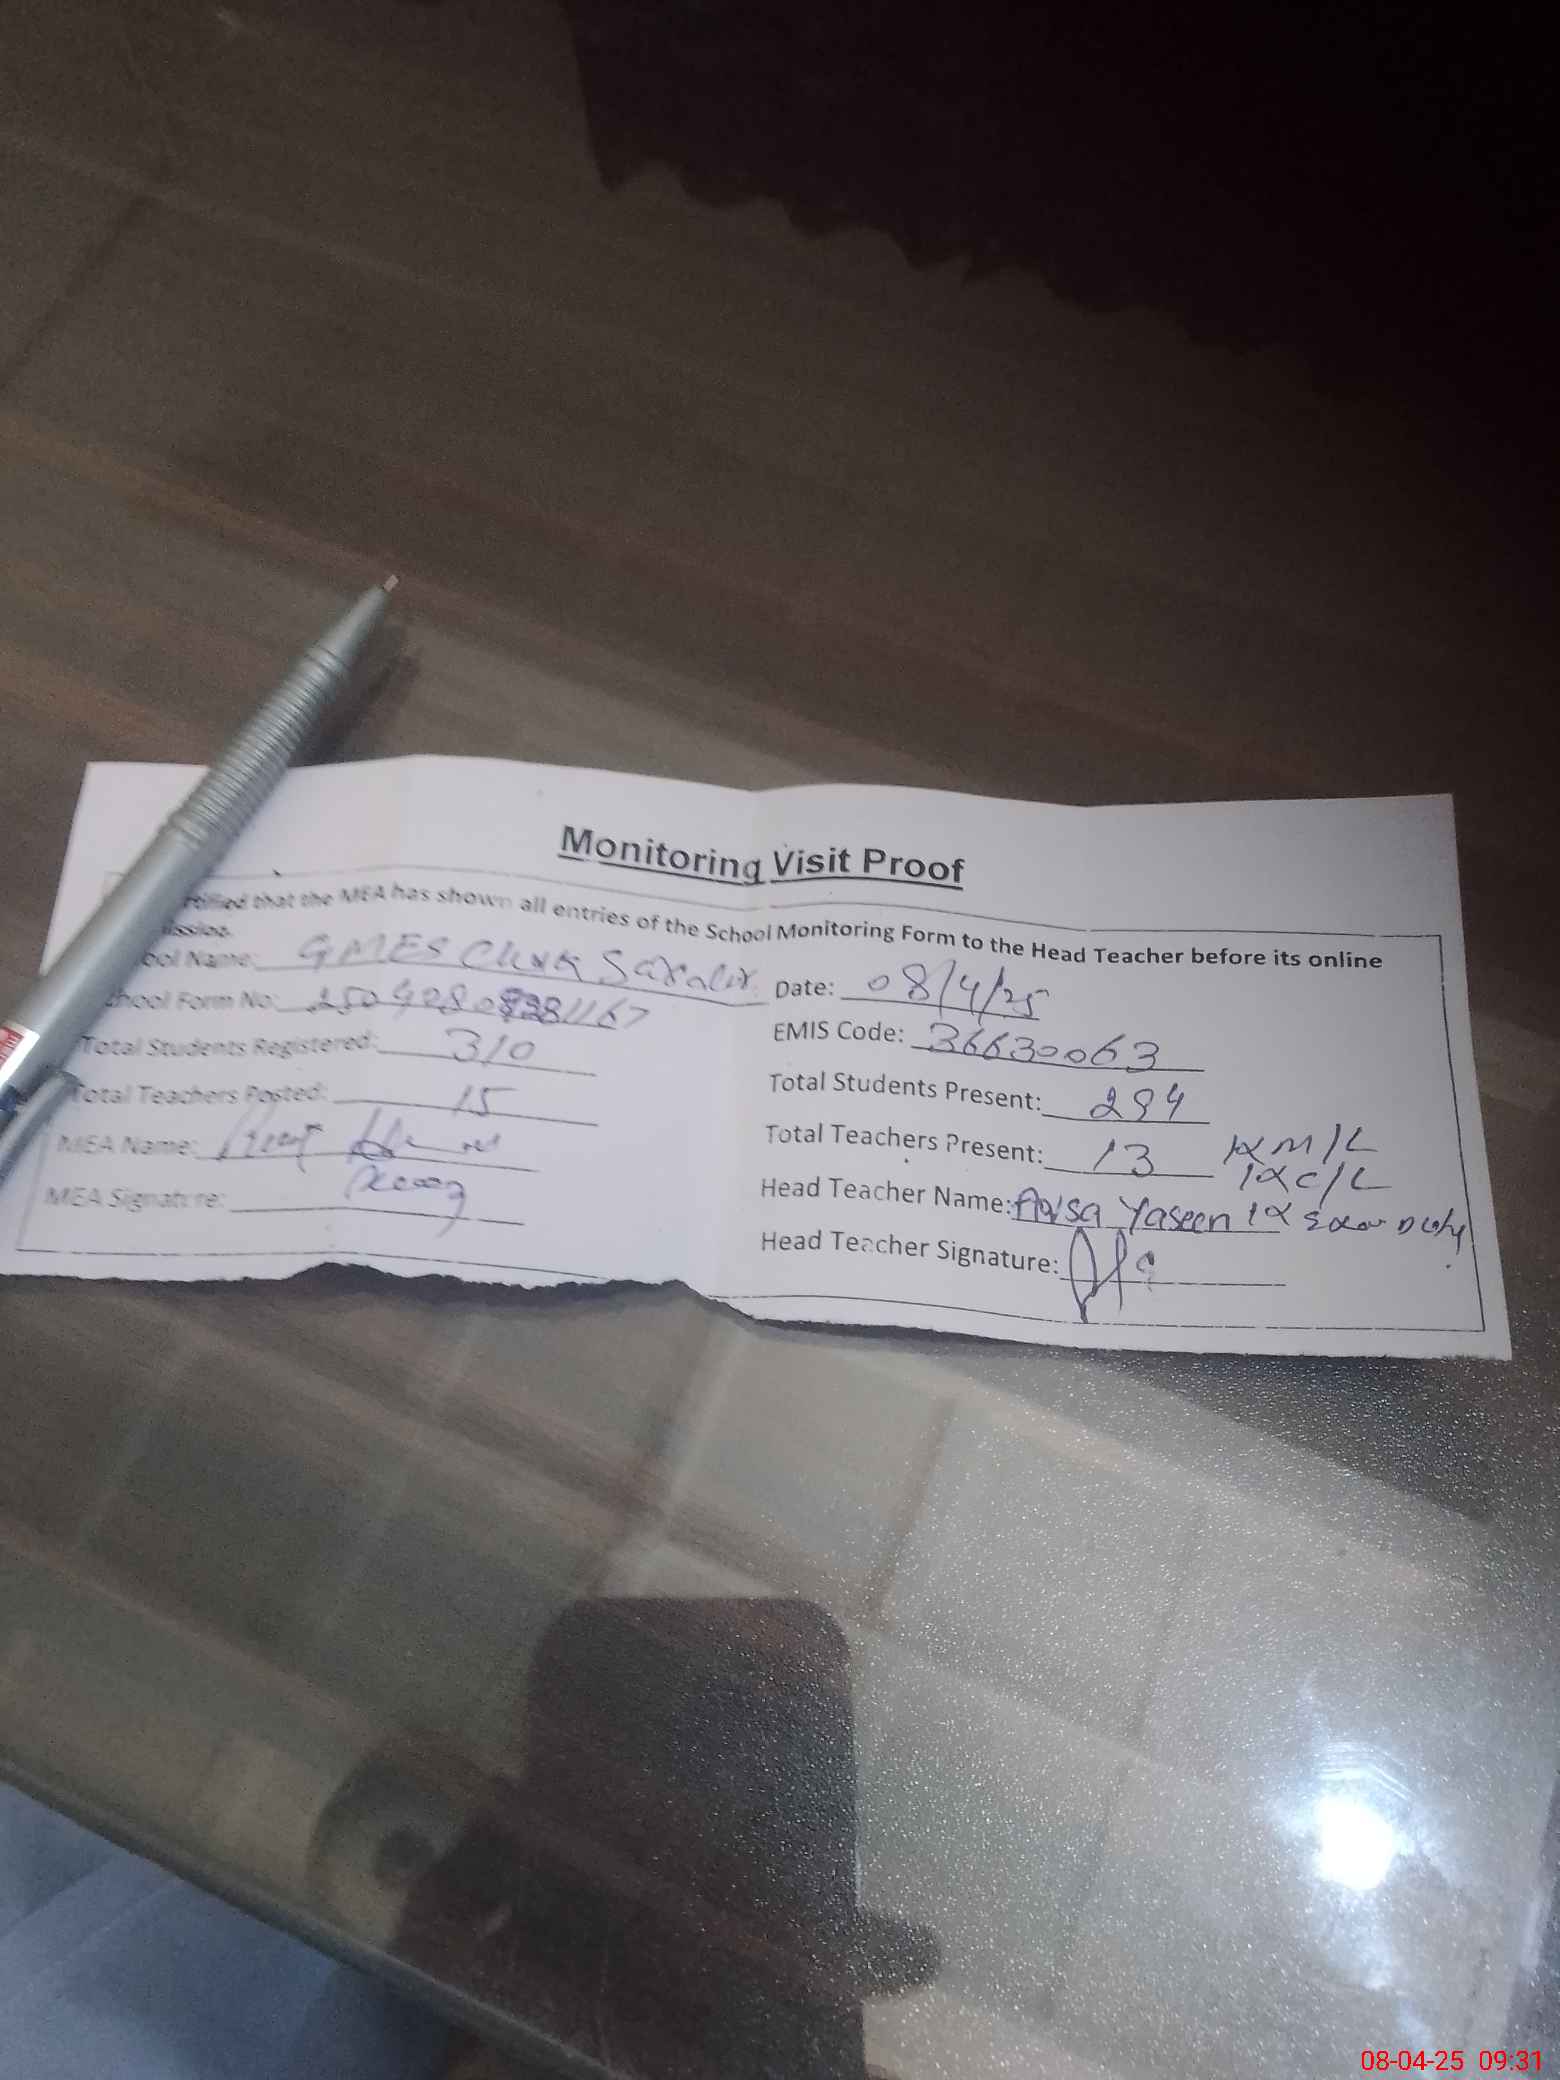 Monitoring Visit Proof
that the MEA has shown all entries of the School Monitoring Form to the Head Teacher before its online
Name: GMES Chak
Date: 08/4/25
School Form No:
EMIS Code: 36630063
Total Students Registered: 310
Total Students Present: 294
Total Teachers Posted: 15
Total Teachers Present: 13 1xM/L
1xC/L
MEA Name:
Head Teacher Name: Yaseen 1x Exam Duty
MEA Signature:
Head Teacher Signature:
08-04-25 09:31